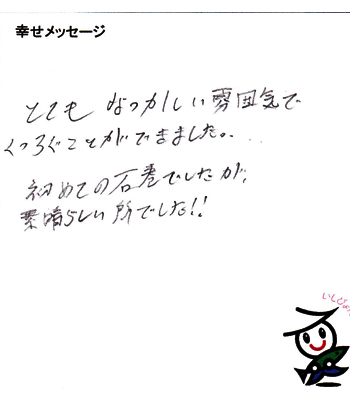 幸せメッセージ
とても なつかしい雰囲気で
くつろぐことができました。..
初めての石巻でしたが、
素晴らしい所でした!!